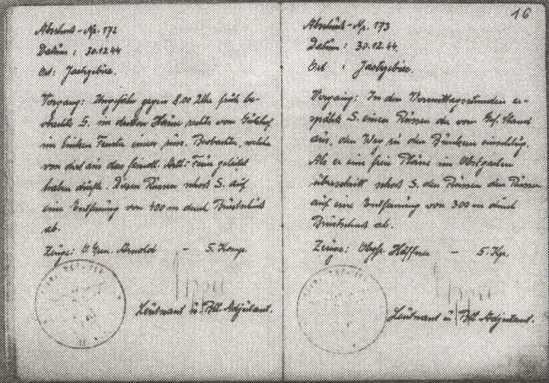 16
Abschuß-Nr. 172
Datum : 30.12.44
Ort : Jaszgebire.
Vorgang: Ungefähr gegen 8.00 Uhr früh be-
S. im Hause rechts vom
im linken Fenster einen russ. Beobachter, welcher
von dort aus das feindl. Feuer geleitet
haben dürfte. Diesen Russen schoß S. auf
eine Entfernung von 400 m durch Brustschuß
ab.
Zeuge: Arnold – 5. Komp.
Leutnant u. Btl.-Adjutant.
Abschuß-Nr. 173
Datum : 30.12.44.
Ort : Jaszgebire.
Vorgang: In den Vormittagsstunden er-
spähte S. einen Russen der vom
aus, den Weg zu den Bunkern einschlug.
Als er eine freie Stelle im Obstgarten
überschritt schoß S. den Russen
auf eine Entfernung von 300 m durch
Brustschuß ab.
Zeuge: Obgfr. Häffner – 5. Kp.
Leutnant u. Btl.-Adjutant.